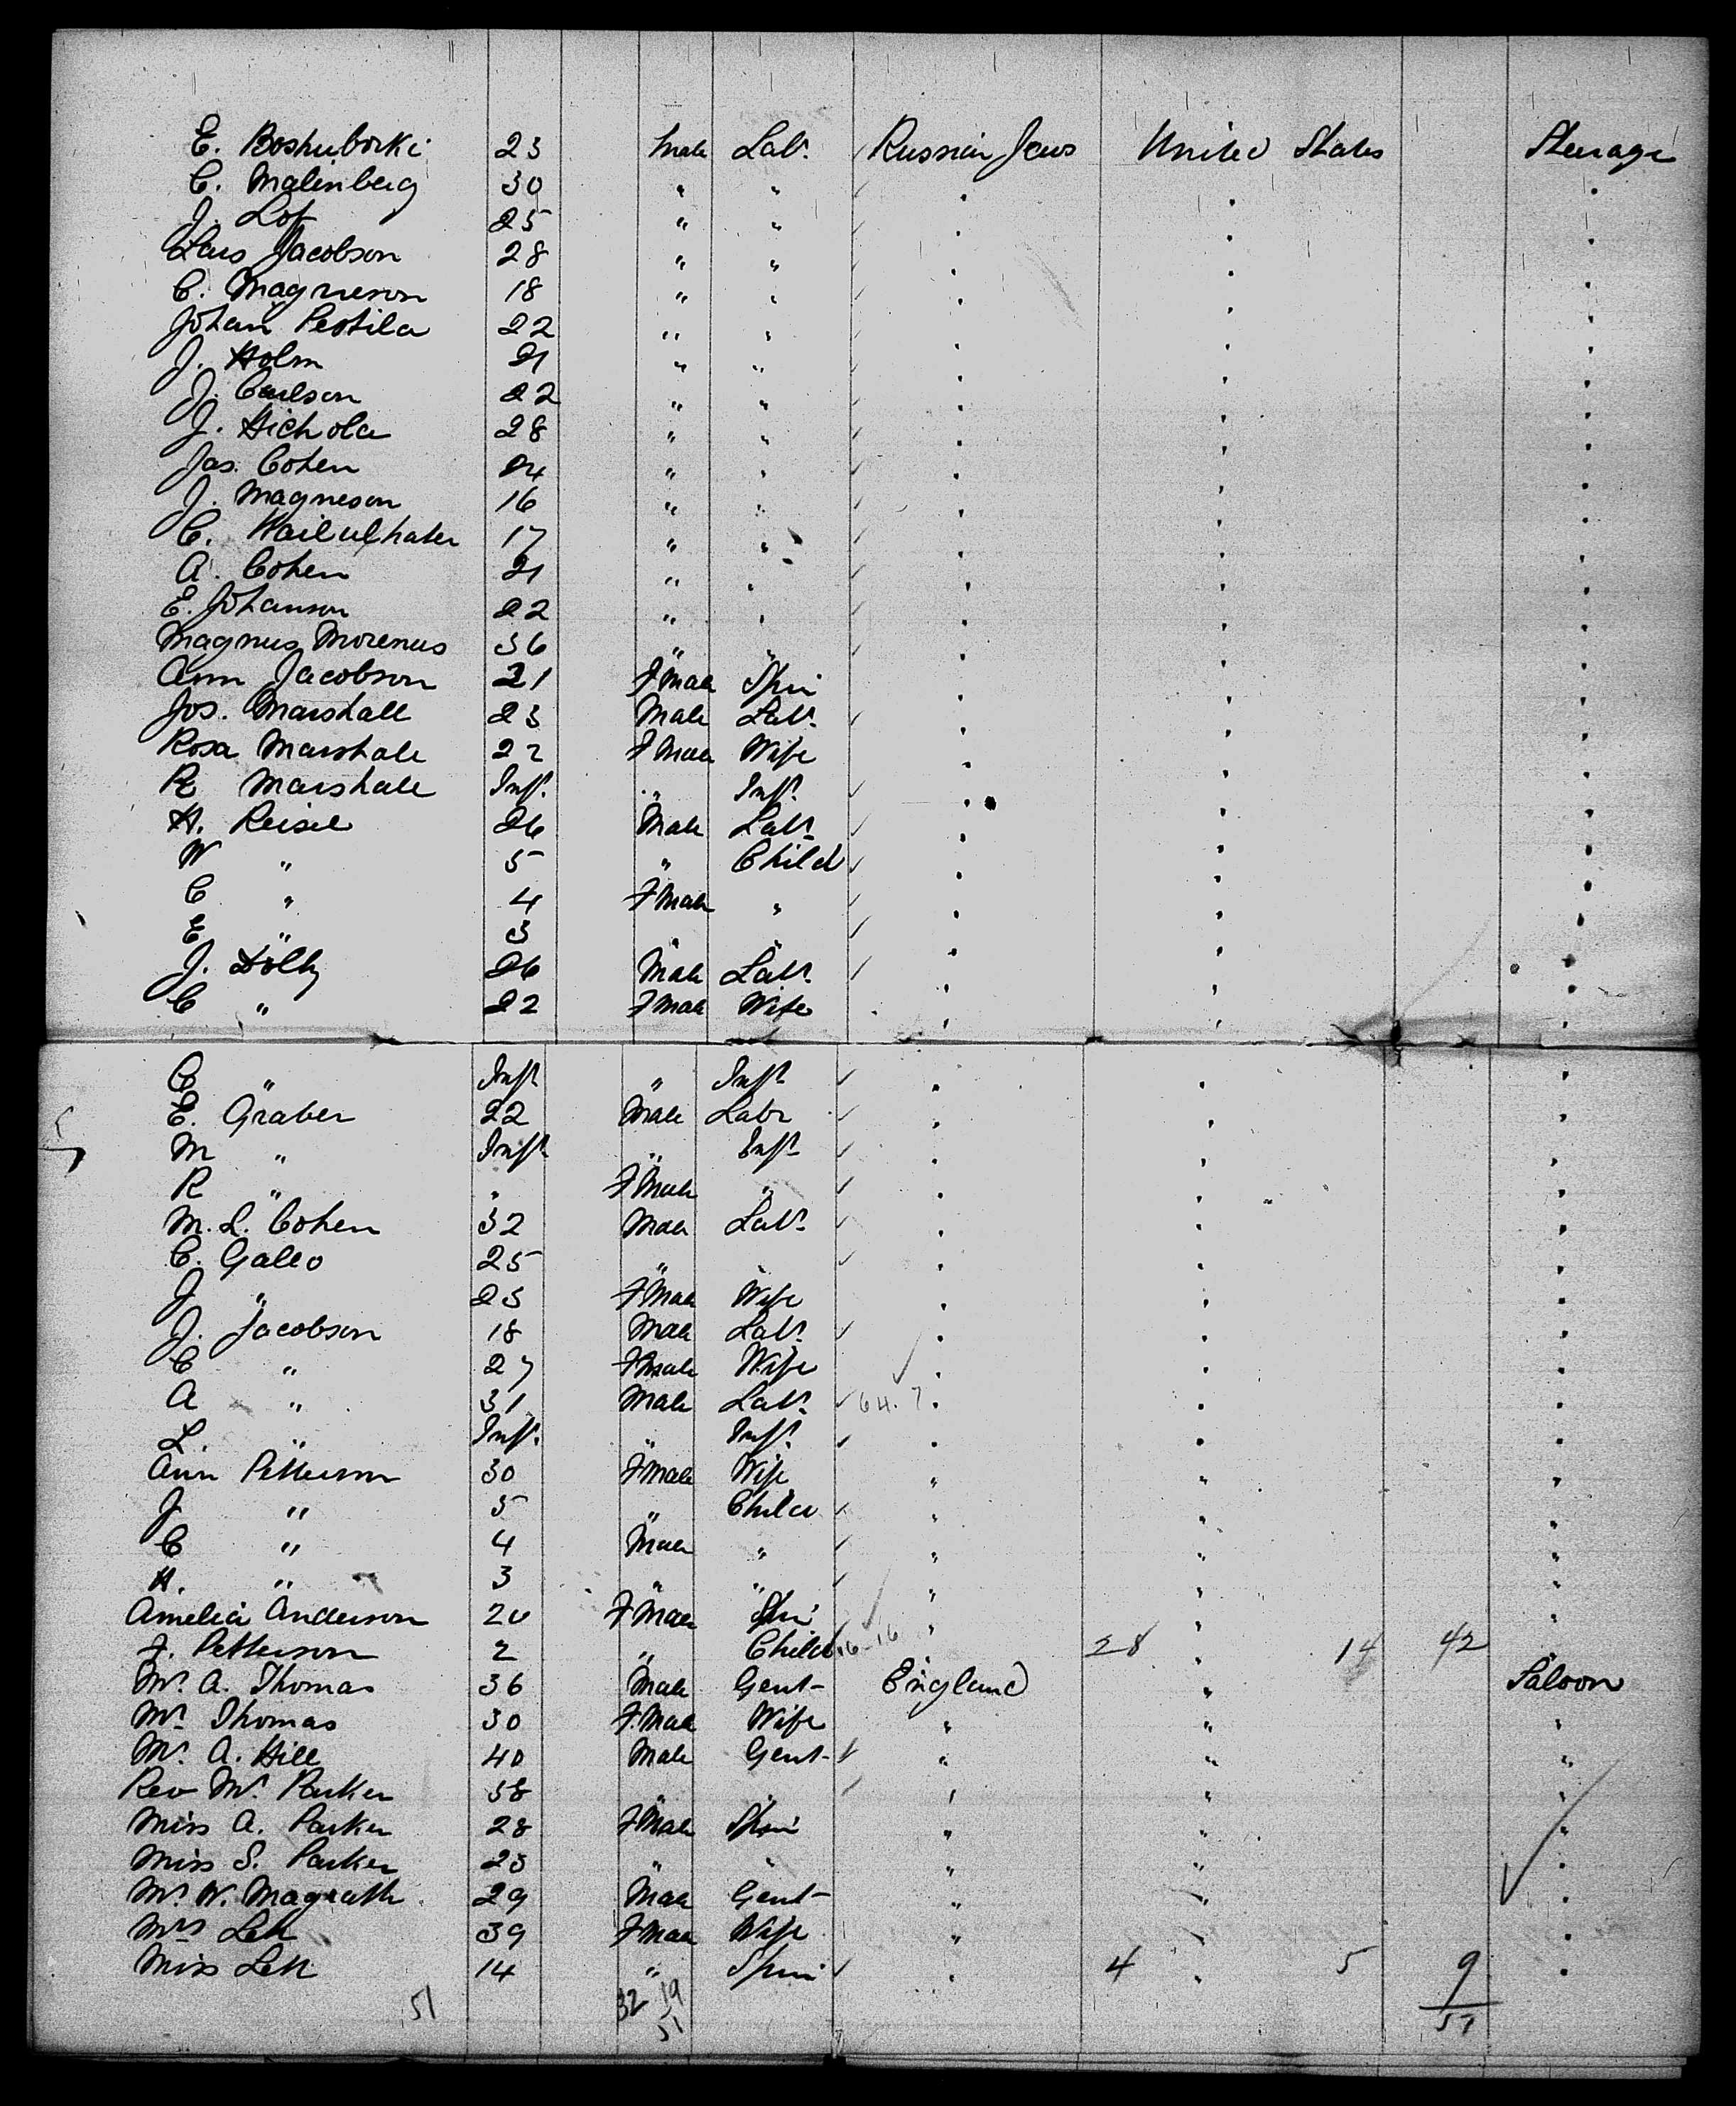 E. Boshuborki 23 Male Labr. Russian Jews United States Steerage
C. Malenberg 30 " " " " "
J. Lof 25 " " " " "
Lars Jacobson 28 " " " " "
C. Magneson 18 " " " " "
Johan Pestila 22 " " " " "
J. Holm 21 " " " " "
J. Carlson 22 " " " " "
J. Hichola 28 " " " " "
Jas. Cohen 24 " " " " "
J. Magneson 16 " " " " "
C. 17 " " " " "
A. Cohen 21 " " " " "
E. Johanson 22 " " " " "
Magnus Morenus 36 " " " " "
Ann Jacobson 21 FMale Spin " " "
Jos. Marshall 23 Male Labr. " " "
Rosa Marshall 22 FMale Wife " " "
R Marshall Inft. " Inft. " " "
H. Reisel 26 Male Labr " " "
W " 5 " Child " " "
C " 4 FMale " " " "
E " 3 " " " " "
J. Dolly 26 Male Labr. " " "
C " 22 FMale Wife " " "
C " Inft " Inft " " "
E. Graber 22 Male Labr " " "
M " Inft " Inft " " "
R " " FMale " " " "
M. L. Cohen 32 Male Labr. " " "
C. Gallo 25 " " " " "
J " 23 FMale Wife " " "
J. Jacobson 18 Male Labr. " " "
C " 27 FMale Wife " " "
A " 31 Male Labr. 64.7 " " "
L. " Inft. " Inft. " " "
Ann Petterson 30 FMale Wife " " "
J " 5 " Child " " "
C " 4 Male " " " "
H. " 3 " " " " "
Amelia Anderson 20 FMale Spin " " "
F. Petterson 2 " Child 16-16 " 28 " 14 42 "
Mr. A. Thomas 36 Male Gent- England " Saloon
Mrs Thomas 30 F.Male Wife " " "
Mr. A. Hill 40 Male Gent- " " "
Rev Mr. Parker 38 " " " " "
Miss A. Parker 28 FMale Spin " " "
Miss S. Parker 23 " " " " "
Mr. W. Magrath 29 Male Gent- " " "
Mrs Lett 39 FMale Wife " " "
Miss Lett 14 " Spin " 4 " 5 9 "
51 32 19 51
51